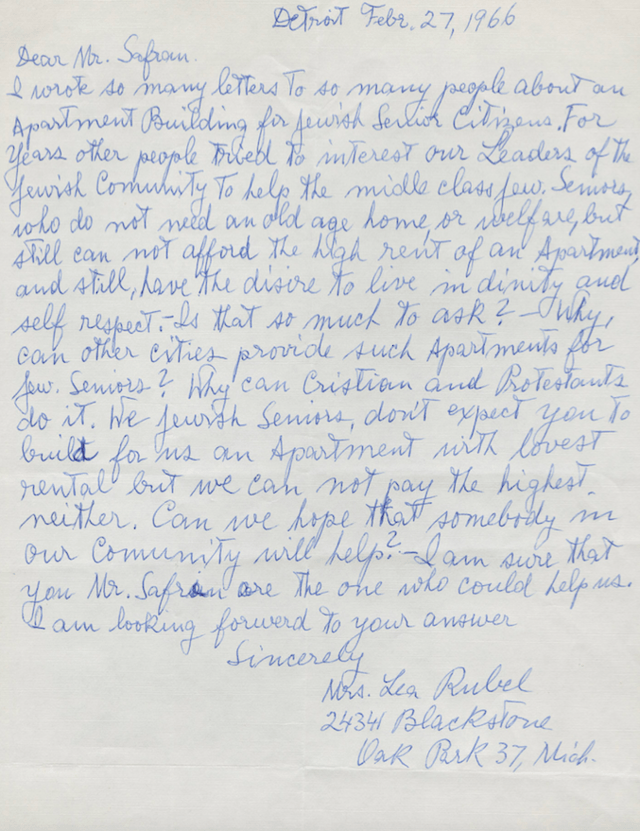 Detroit Febr. 27, 1966
Dear Mr. Safran.
I wrote so many letters to so many people about an
Apartment Building for Jewish Senior Citizens. For
Years other people tried to interest our Leaders of the
Jewish Comunity to help the middle class Jew. Seniors,
who do not need an old age home, or welfare, but
still can not afford the high rent of an Apartment,
and still, have the disire to live in dinity and
self respect.- Is that so much to ask? - Why,
can other cities provide such Apartments for
Jew. Seniors? Why can Cristian and Protestants
do it. We Jewish Seniors, don't expect you to
build for us an Apartment with lovest
rental but we can not pay the highest
neither. Can we hope that somebody in
our Comunity will help? - I am sure that
you Mr. Safran are the one who could help us.
I am looking forwerd to your answer
Sincerely
Mrs. Lea Rubel
24341 Blackstone
Oak Park 37, Mich.